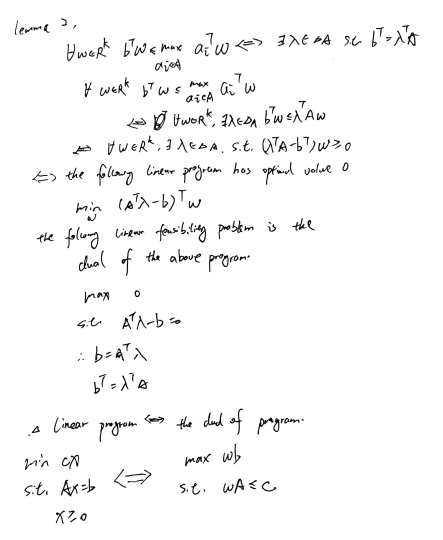 lemma 2,
∀w∈R^k b^T w ≤ max_{a_i∈A} a_i^T w ⟺ ∃λ∈ΔA s.t. b^T = λ^T A
∀ w∈R^k b^T w ≤ max_{a_i∈A} a_i^T w
⟺ ∀w∈R^k, ∃λ∈Δ_A b^T w ≤ λ^T A w
⟺ ∀w∈R^k, ∃λ∈Δ_A. s.t. (λ^T A - b^T) w ≥ 0
⟺ the following linear program has optimal value 0
min_w (A^T λ - b)^T w
the following linear feasibility problem is the
dual of the above program.
max 0
s.t. A^T λ - b = 0
∴ b = A^T λ
b^T = λ^T A
△ linear program ⟺ the dual of program.
min cx max wb
s.t. Ax = b ⟺ s.t. wA ≤ c
x ≥ 0